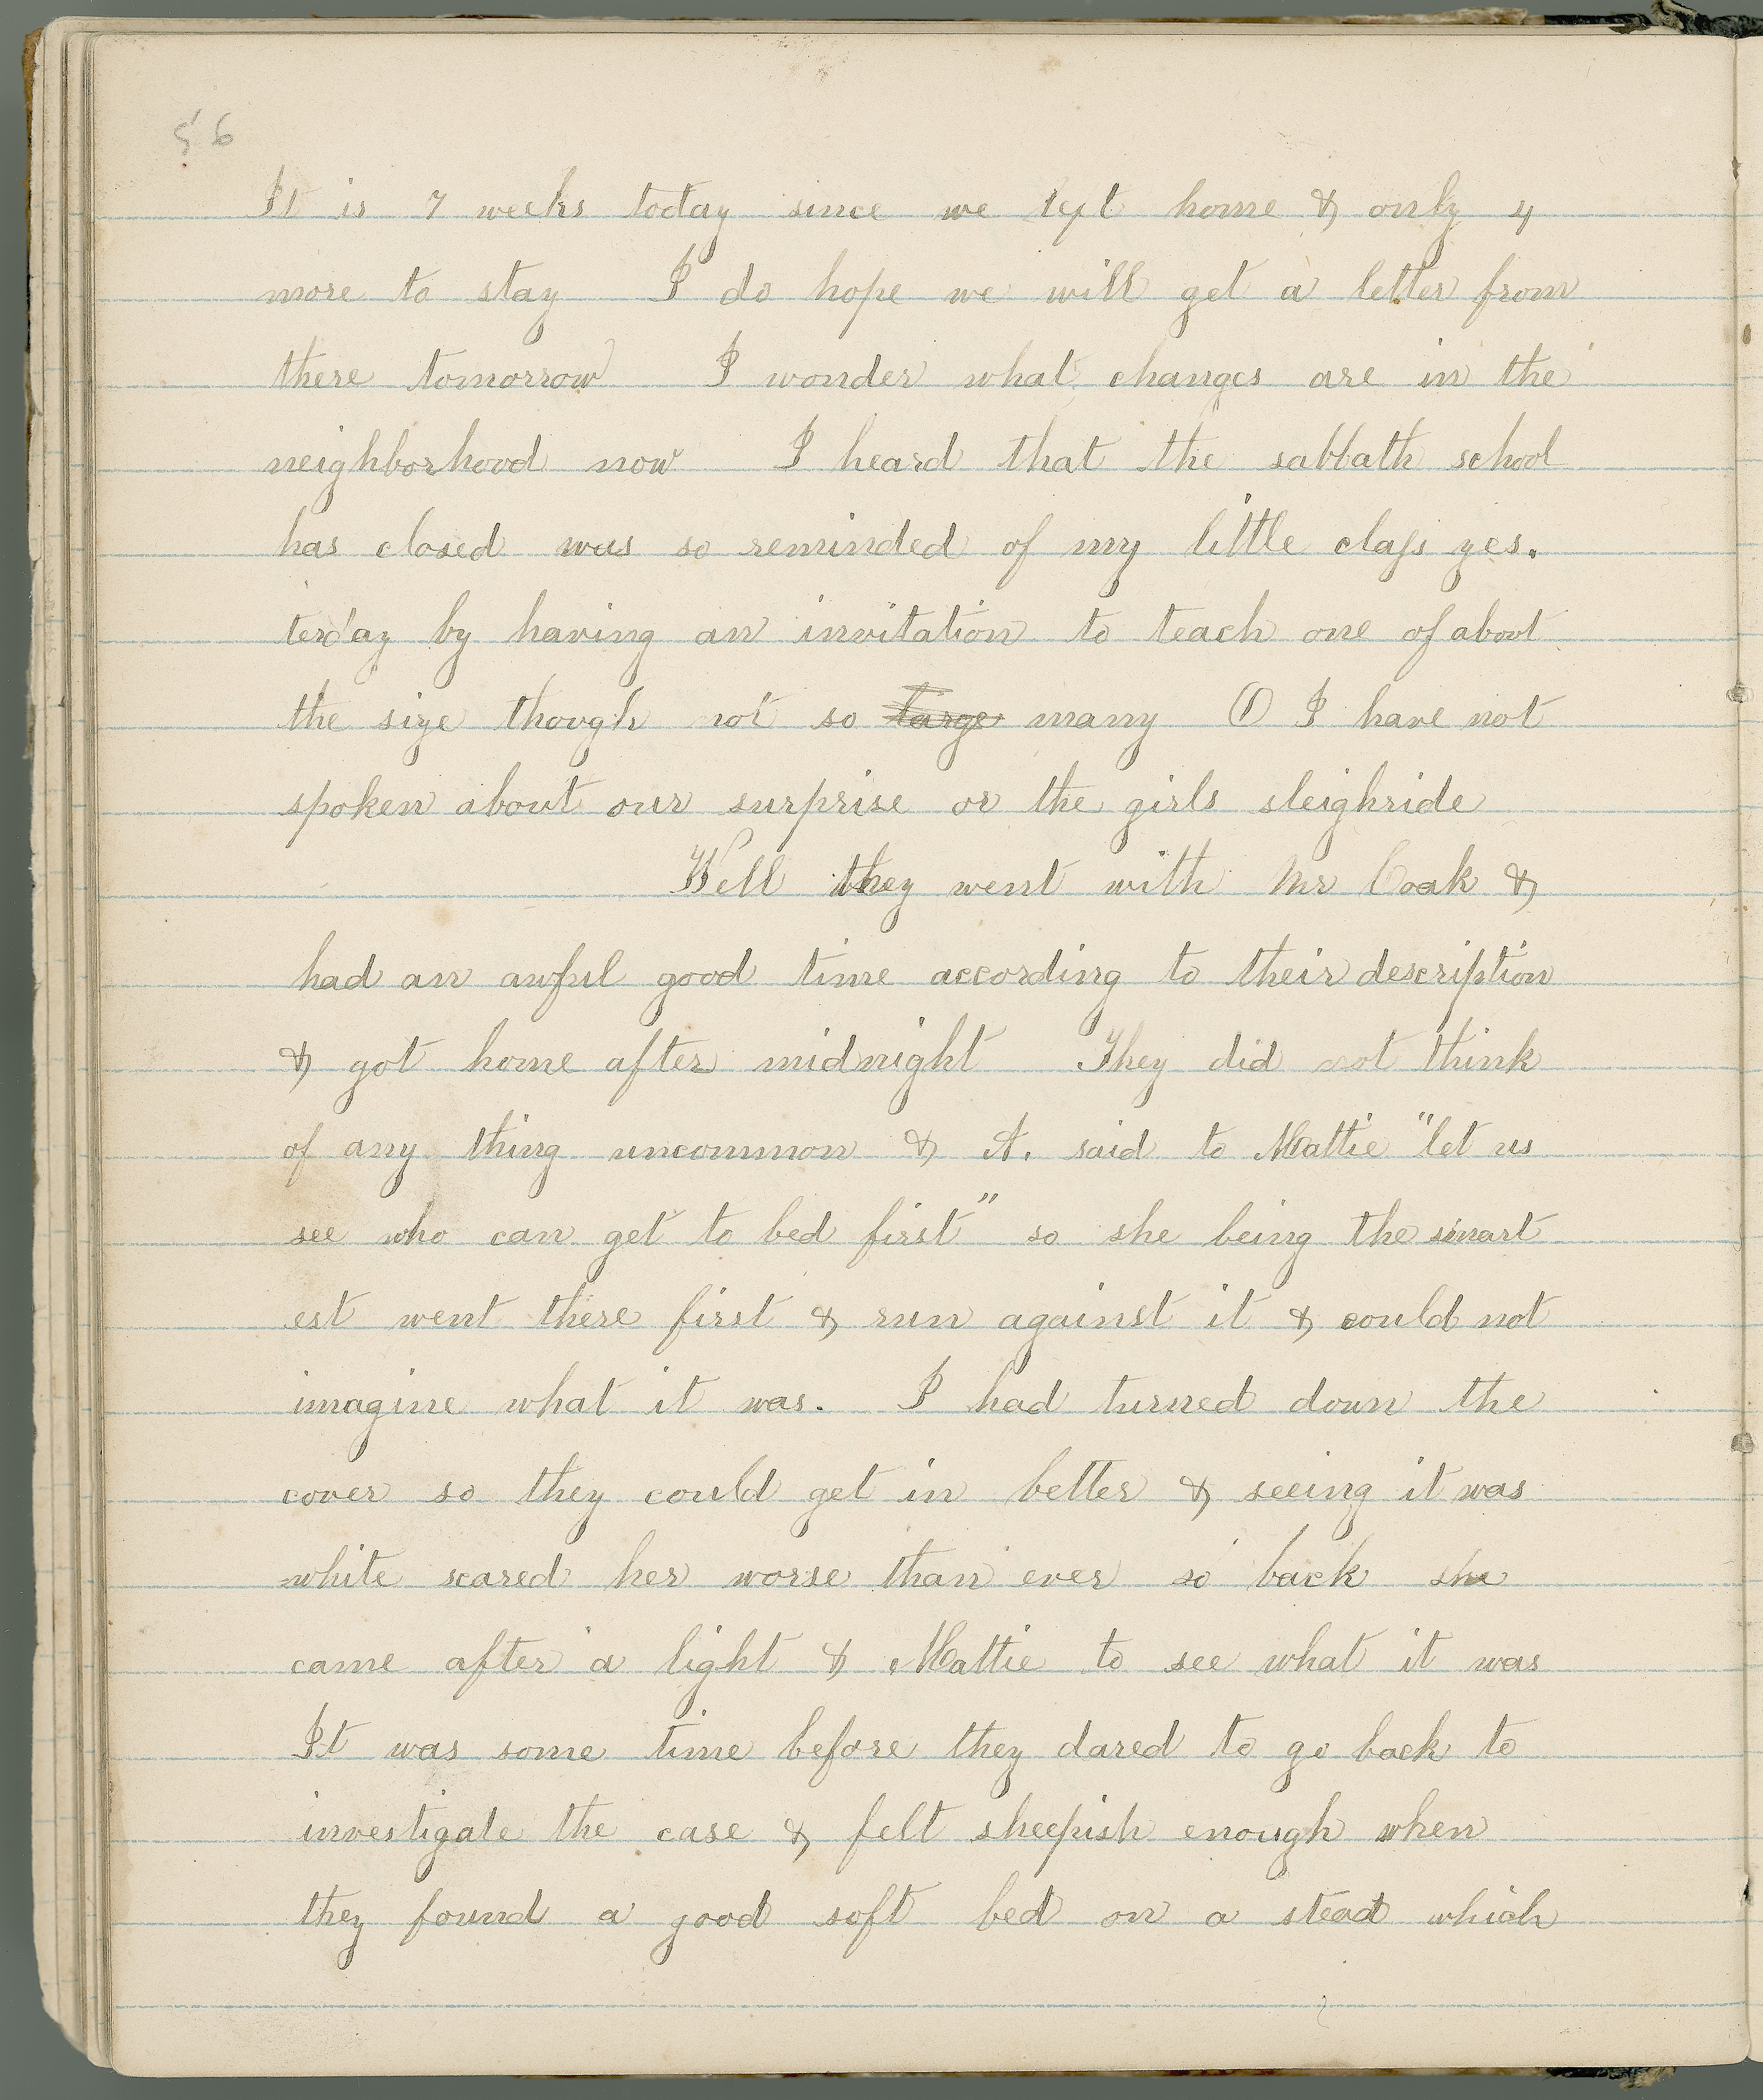 56
It is 7 weeks today since we left home & only 4
more to stay I do hope we will get a letter from
there tomorrow I wonder what changes are in the
neighborhood now I heard that the sabbath school
has closed was so reminded of my little class yes.
terday by having an invitation to teach one of about
the size though not so large many O I have not
spoken about our surprise or the girls sleighride
Well they went with Mr Coak &
had an awful good time according to their description
& got home after midnight They did not think
of any thing uncommon & A. said to Mattie "let us
see who can get to bed first" so she being the smart
est went there first & run against it & could not
imagine what it was. I had turned down the
cover so they could get in better & seeing it was
white scared her worse than ever so back she
came after a light & Mattie to see what it was
It was some time before they dared to go back to
investigate the case & felt sheepish enough when
they found a good soft bed on a stead which